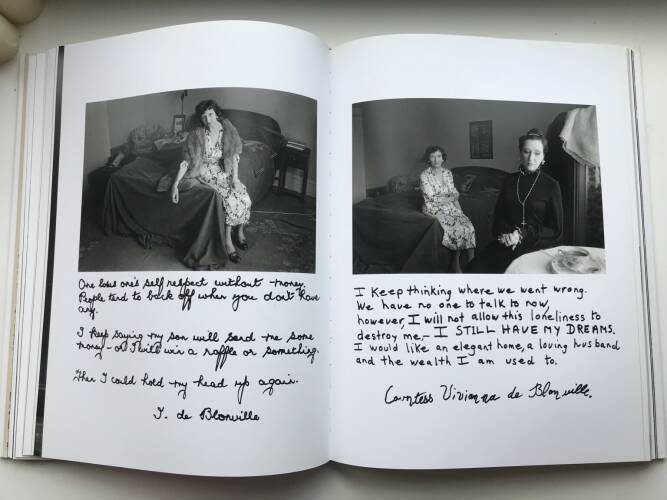 One loses one's self respect without money.
People tend to back off when you don't have
any.
I keep saying my son will send me some
money - or I will win a raffle or something.
Then I could hold my head up again.
T. de Blonville
I Keep thinking where we went wrong.
We have no one to talk to now,
however, I will not allow this loneliness to
destroy me,- I STILL HAVE MY DREAMS.
I would like an elegant home, a loving husband
and the wealth I am used to.
Countess Vivianna de Blonville.